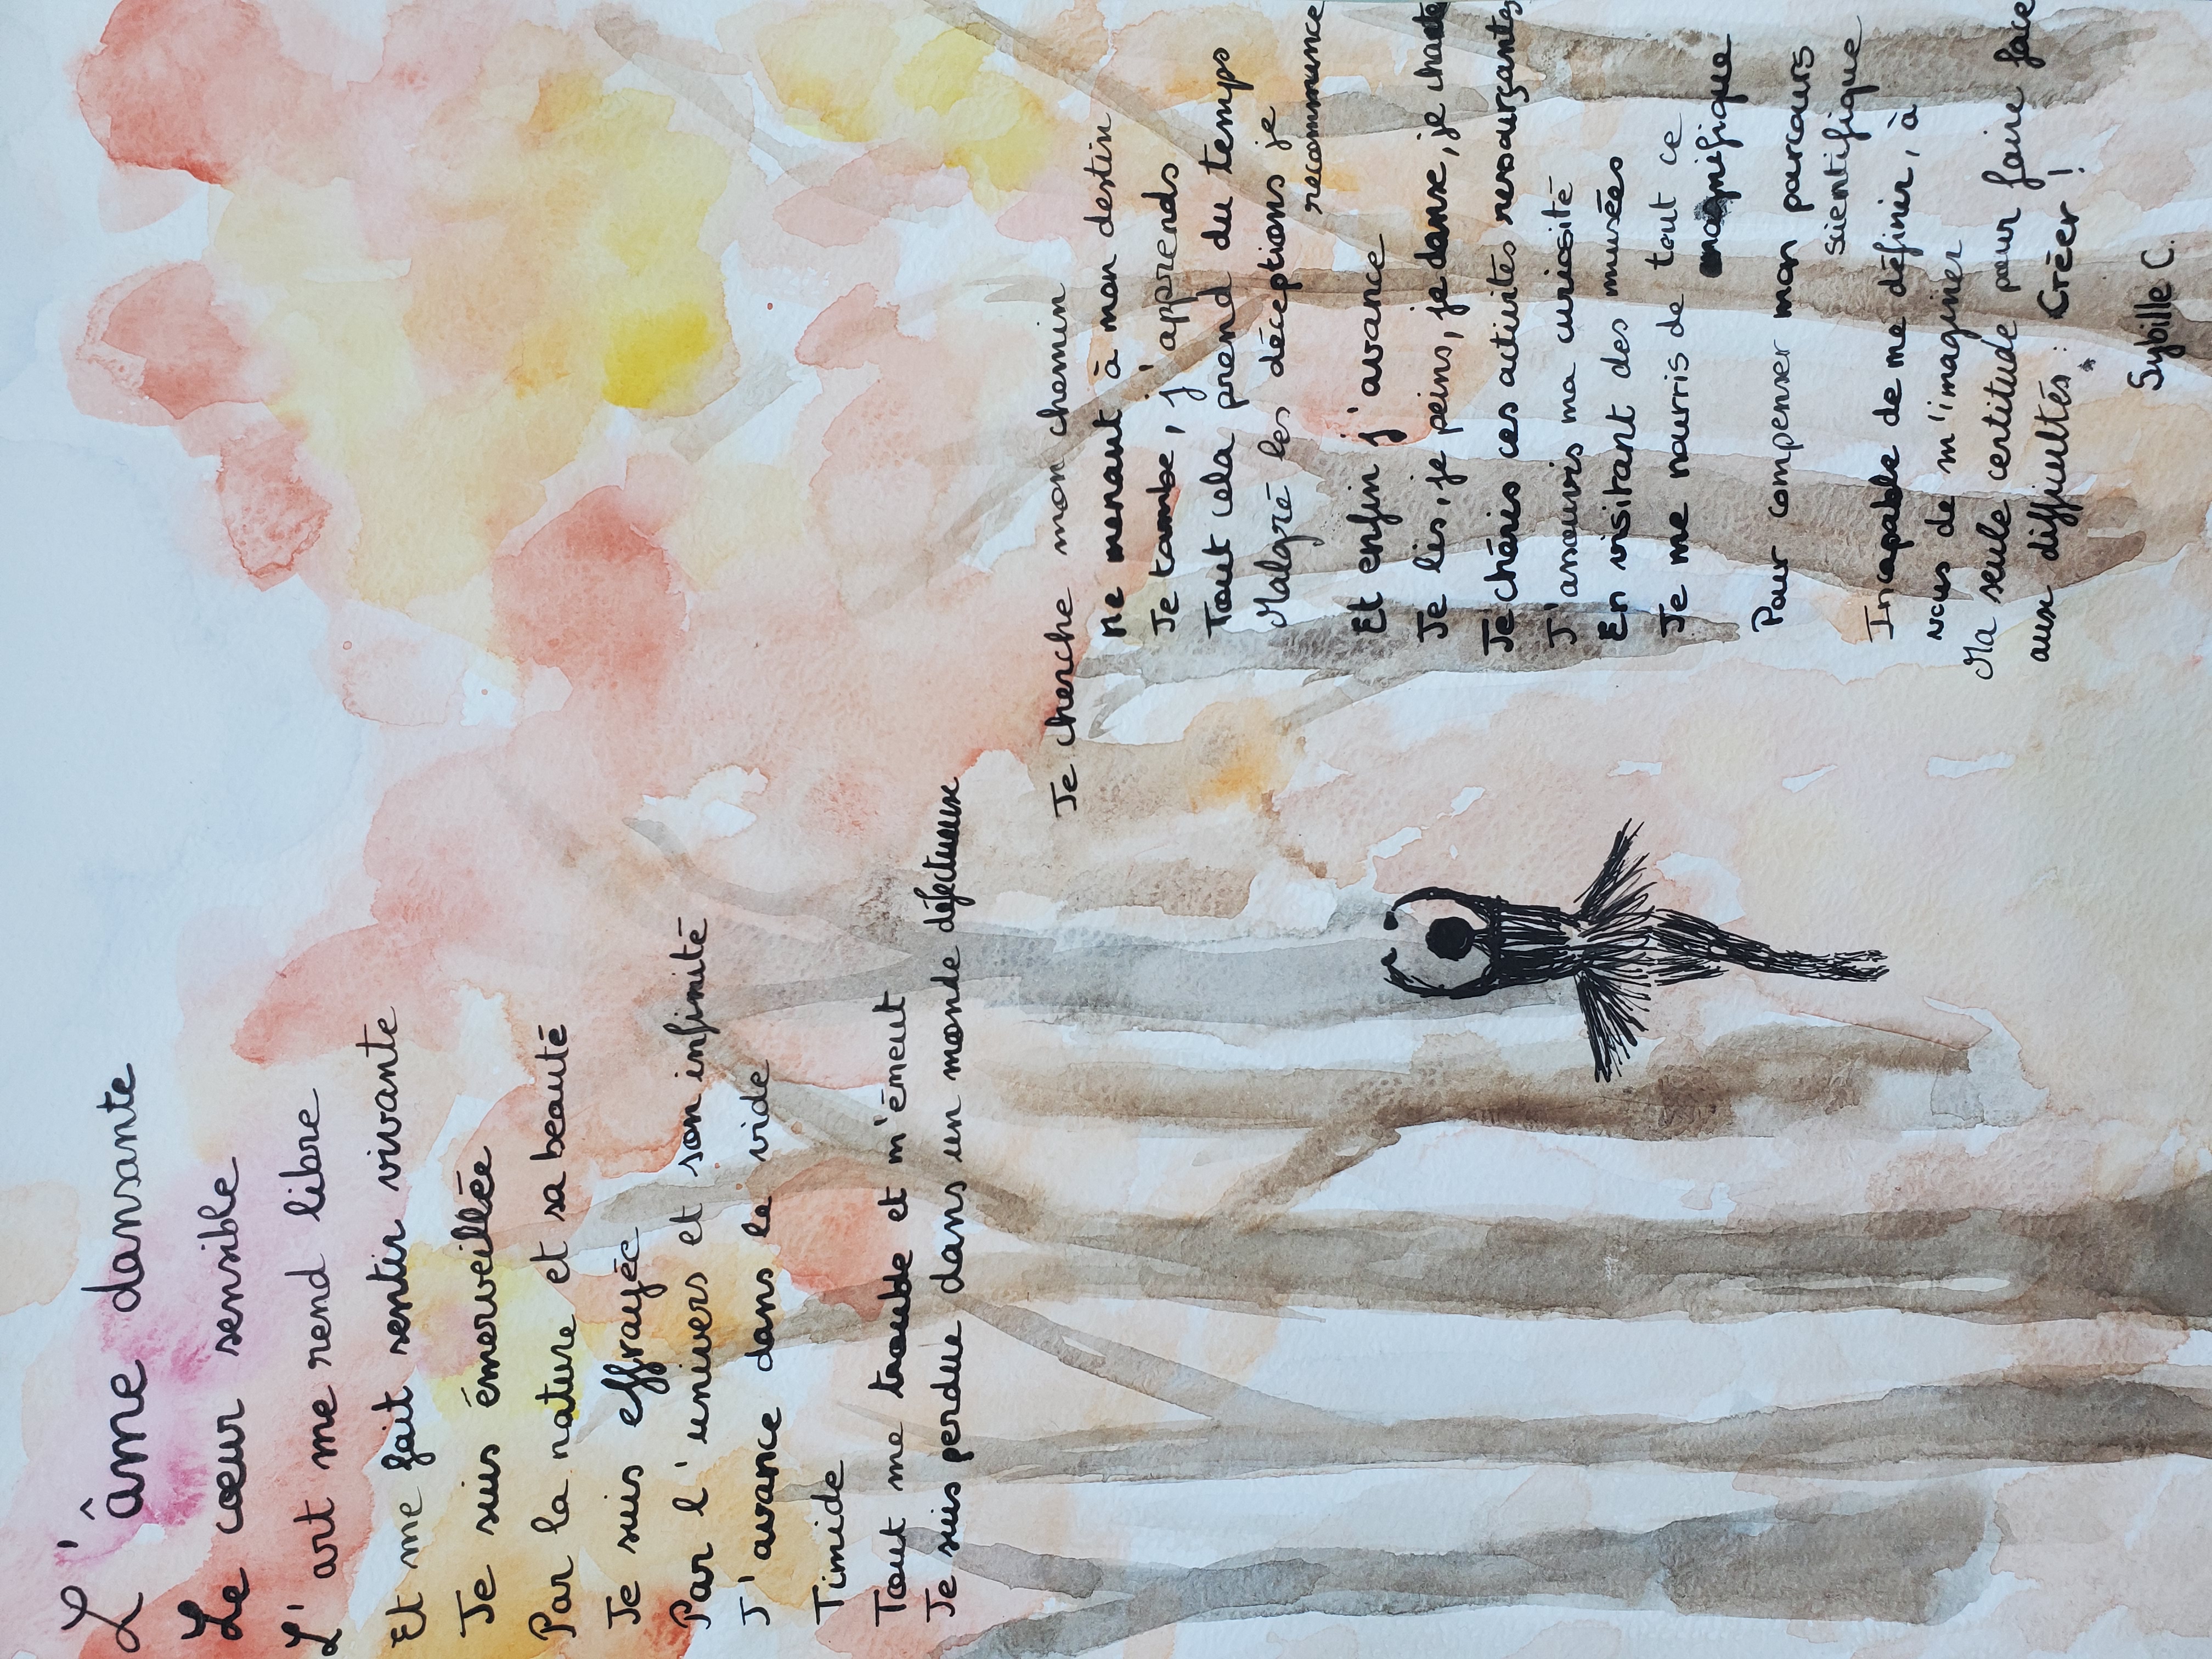 L'âme dansante
Le cœur sensible
L'art me rend libre
Et me fait sentir vivante
Je suis émerveillée
Par la nature et sa beauté
Je suis effrayée
Par l'univers et son infinité
J'avance dans le vide
Timide
Tout me trouble et m'émeut
Je suis perdue dans un monde défectueux
Je cherche mon chemin
Me menant à mon destin
Je tombe, j'apprends
Tout cela prend du temps
Malgré les déceptions je
recommence
Et enfin j'avance
Je lis, je peins, je danse, je chante
Je chéris ces activités ressourçantes
J'assouvis ma curiosité
En visitant des musées
Je me nourris de tout ce
magnifique
Pour compenser mon parcours
scientifique
Incapable de me définir, à
vous de m'imaginer
Ma seule certitude pour faire face
aux difficultés : Créer !
Sybille C.